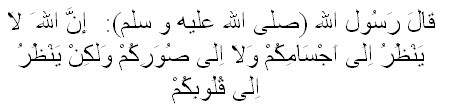 قالَ رَسُول الله (صلى الله عليه و سلم): إنَّ اللهَ لا
يَنْظُرُ اِلى اَجْسَامِكُمْ وَلا اِلى صُوَرِكُمْ وَلَكِنْ يَنْظُرُ
اِلى قُلُوبِكُمْ